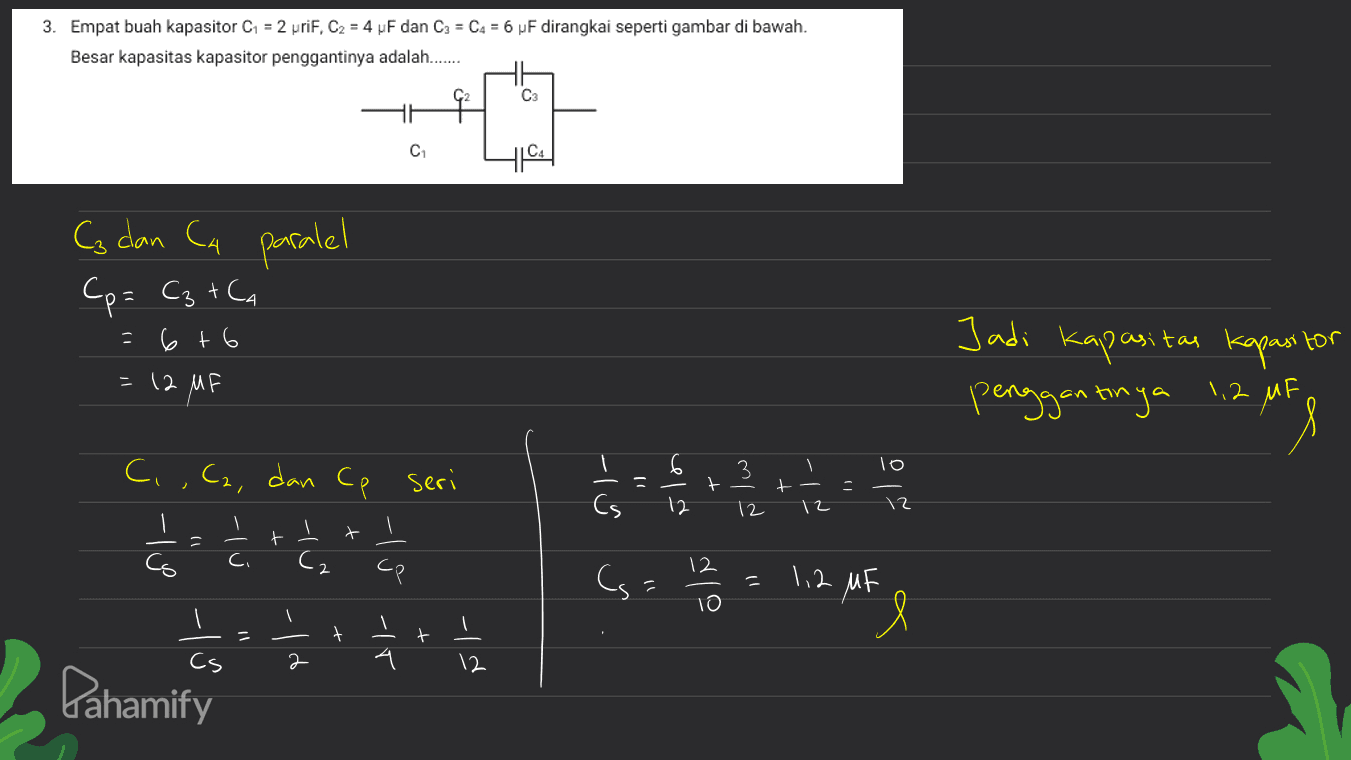 3. Empat buah kapasitor C₁ = 2 μriF, C₂ = 4 μF dan C₃ = C₄ = 6 μF dirangkai seperti gambar di bawah.
Besar kapasitas kapasitor penggantinya adalah.......
C₂
C₃
C₁
C₄
C₃ dan C₄ paralel
Cp = C₃ + C₄
= 6 + 6
= 12 μF
C₁, C₂, dan Cp seri
1/Cs = 1/C₁ + 1/C₂ + 1/Cp
1/Cs = 1/2 + 1/4 + 1/12
1/Cs = 6/12 + 3/12 + 1/12 = 10/12
Cs = 12/10 = 1,2 μF
Jadi kapasitas kapasitor
penggantinya 1,2 μF
Pahamify